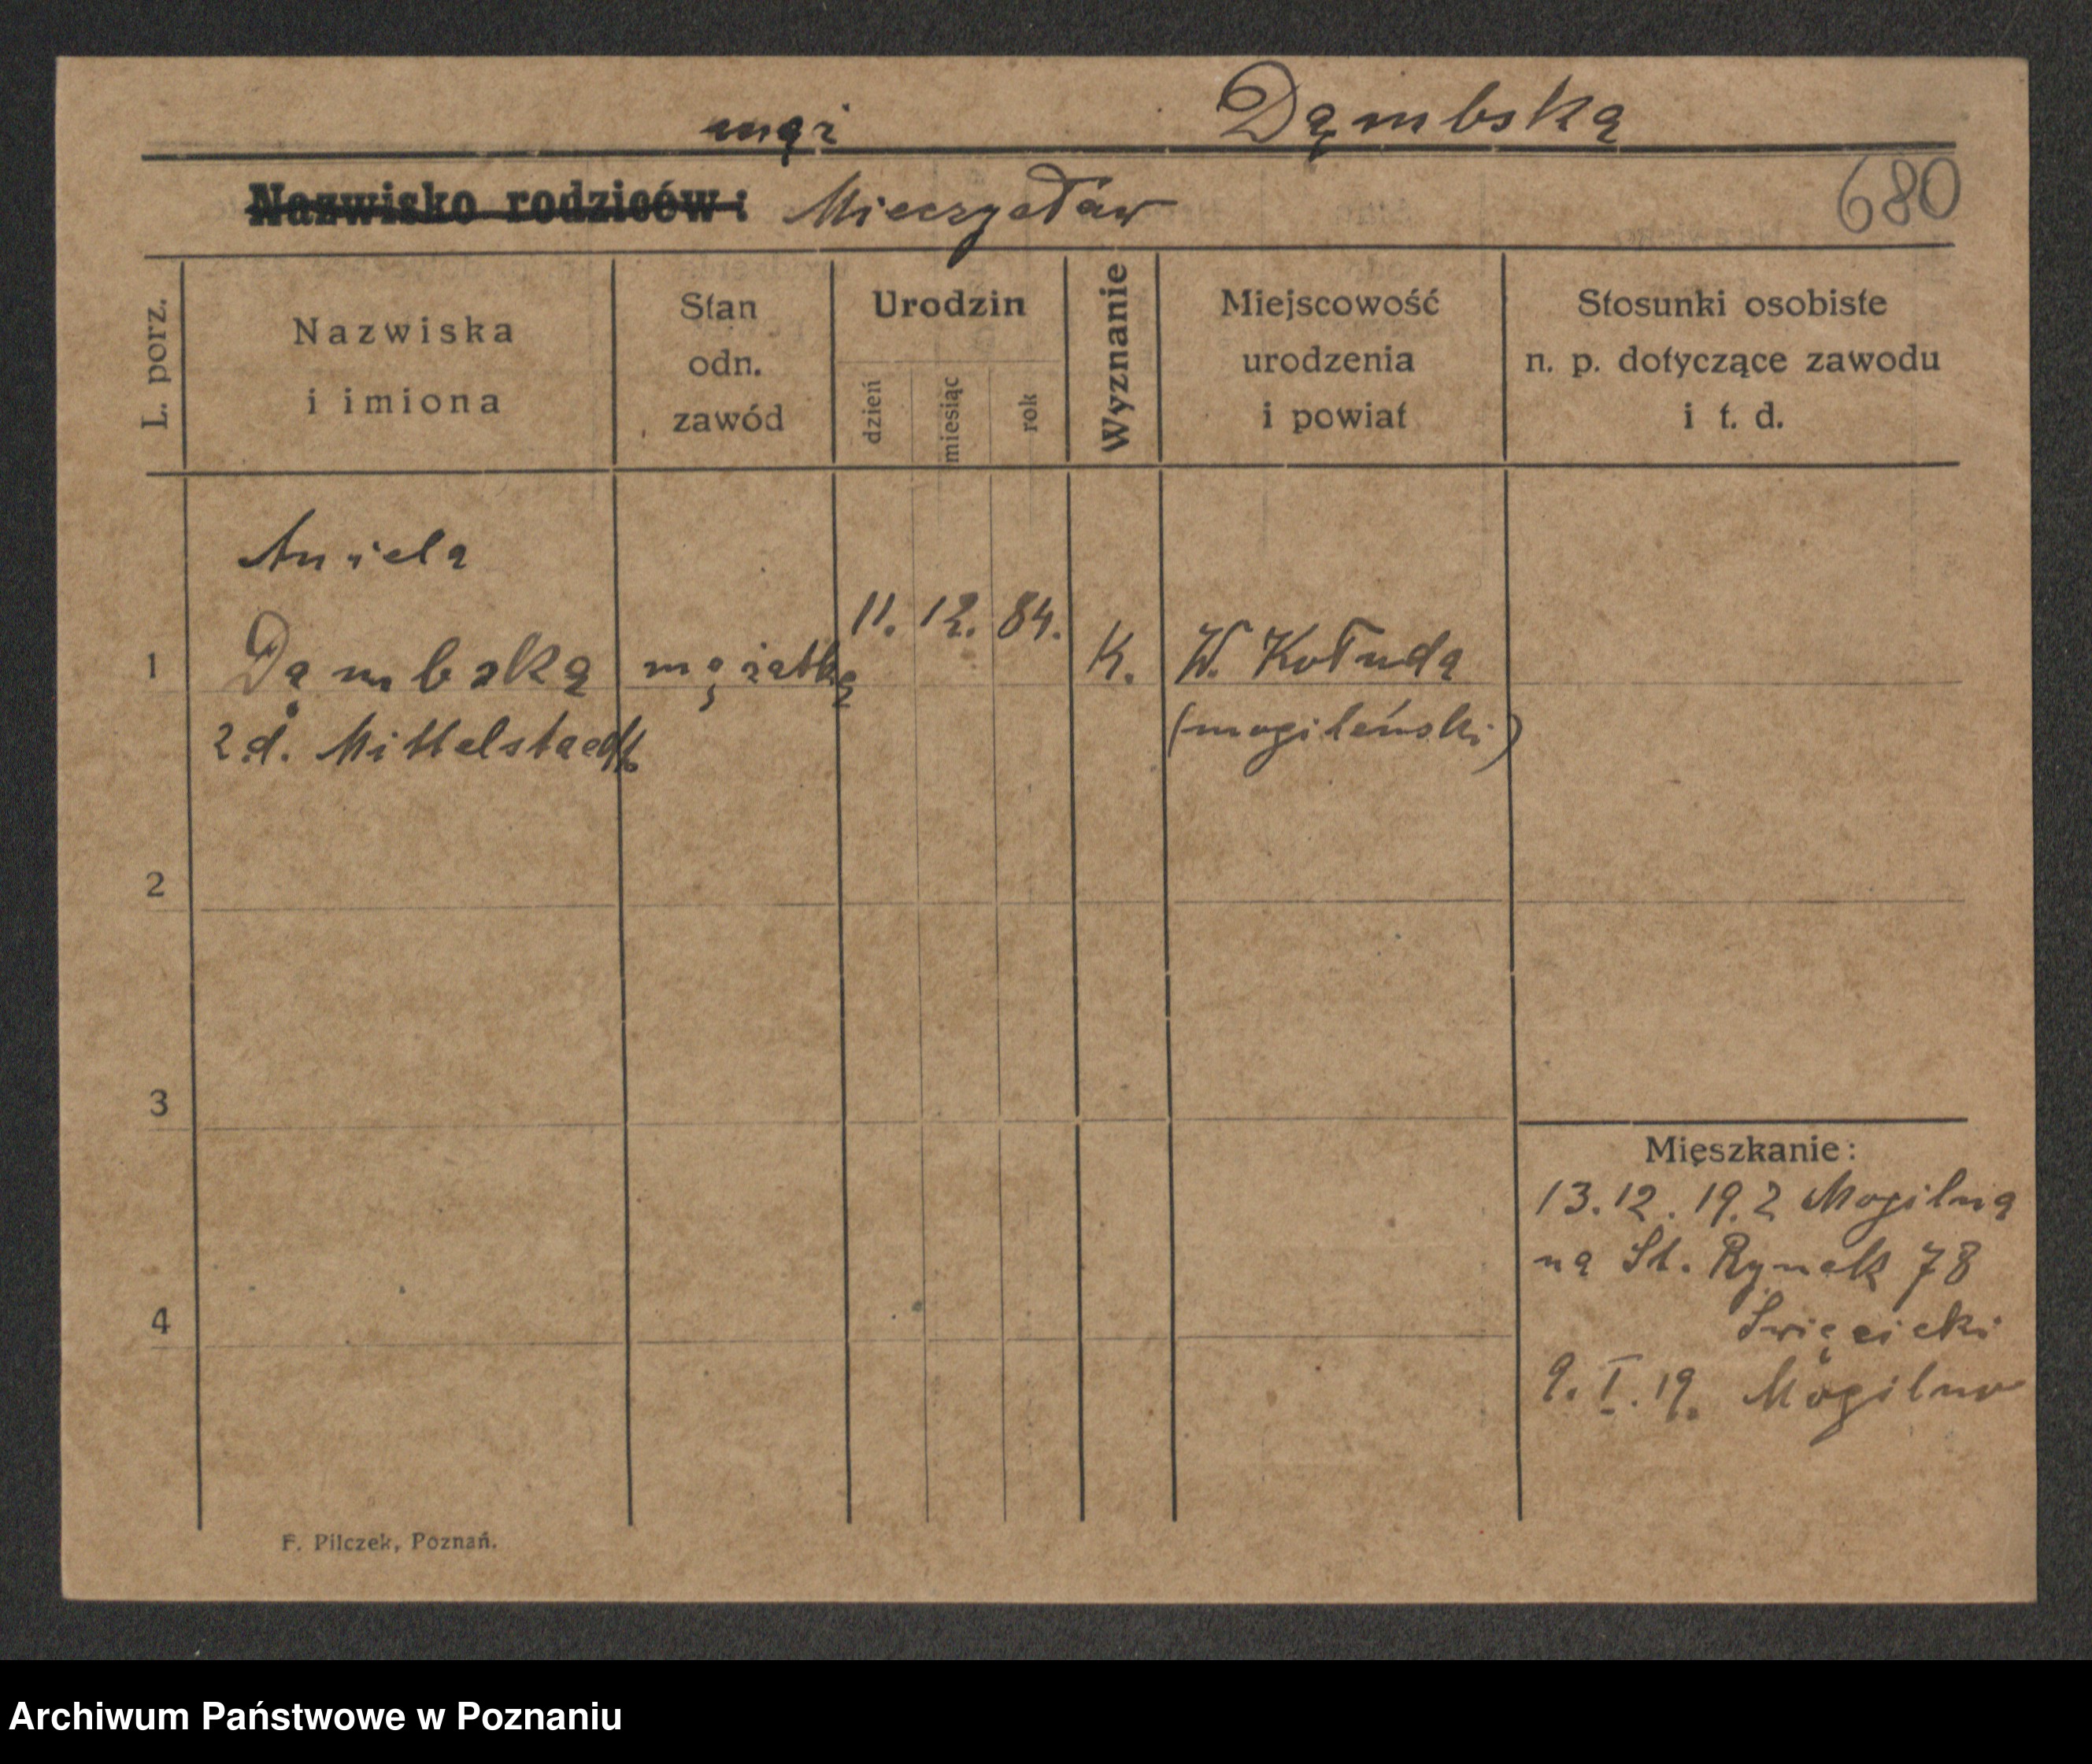 Dąmbska
mąż
Nazwisko rodziców: Mieczysław
680
L. porz.
Nazwiska
i imiona
Stan
odn.
zawód
Urodzin
dzień
miesiąc
rok
Wyznanie
Miejscowość
urodzenia
i powiat
Stosunki osobiste
n. p. dotyczące zawodu
i t. d.
Aniela
1 Dąmbska mężatka 11. 12. 84. K. W. Kołuda
z d. Mittelstaedt (mogileński)
2
3
Mieszkanie:
13.12.19. z Mogilna
na St. Rynek 78
4 Święcicki
9. I. 19. Mogilno
F. Pilczek, Poznań.
Archiwum Państwowe w Poznaniu